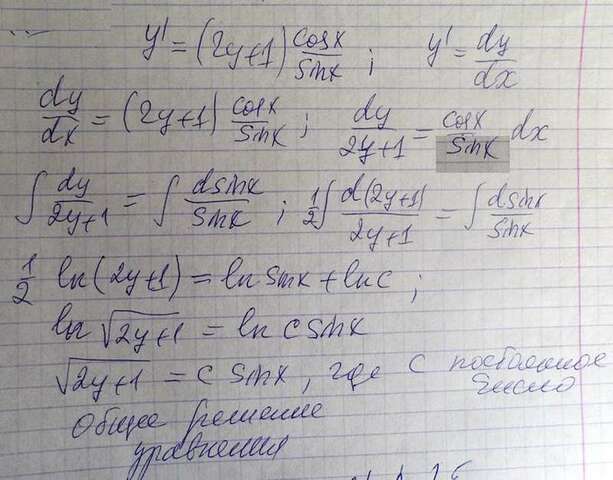 y' = (2y+1) cosx/sinx ; y' = dy/dx
dy/dx = (2y+1) cosx/sinx ; dy/(2y+1) = cosx/sinx dx
∫ dy/(2y+1) = ∫ dsinx/sinx ; 1/2 ∫ d(2y+1)/(2y+1) = ∫ dsinx/sinx
1/2 ln(2y+1) = ln sinx + ln c ;
ln √(2y+1) = ln c sinx
√(2y+1) = c sinx , где c постоянное
число
Общее решение
уравнения